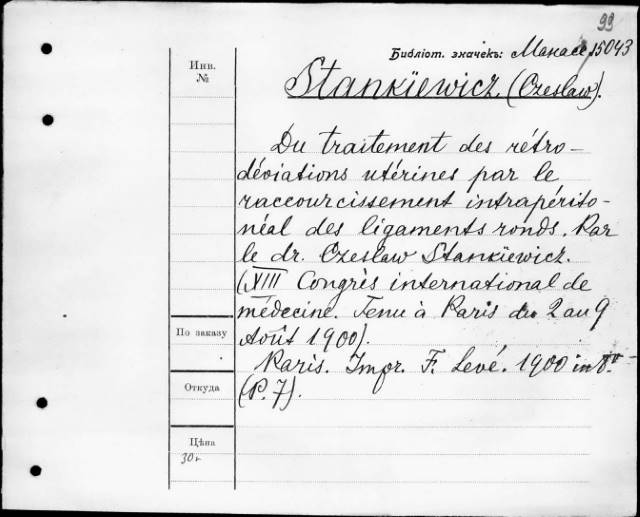 99
Библіот. значекъ: Манасе, 15043
Инв.
№
Stankiewicz. (Czeslaw).
Du traitement des rétro-
déviations utérines par le
raccourcissement intrapérito-
néal des ligaments ronds. Par
le dr. Czeslaw Stankiewicz.
(XIII Congrès international de
médecine. Tenu à Paris du 2 au 9
Août 1900).
По заказу
Paris. Impr. F. Levé. 1900 in 8º.
Откуда
(P. 7).
Цѣна
30к